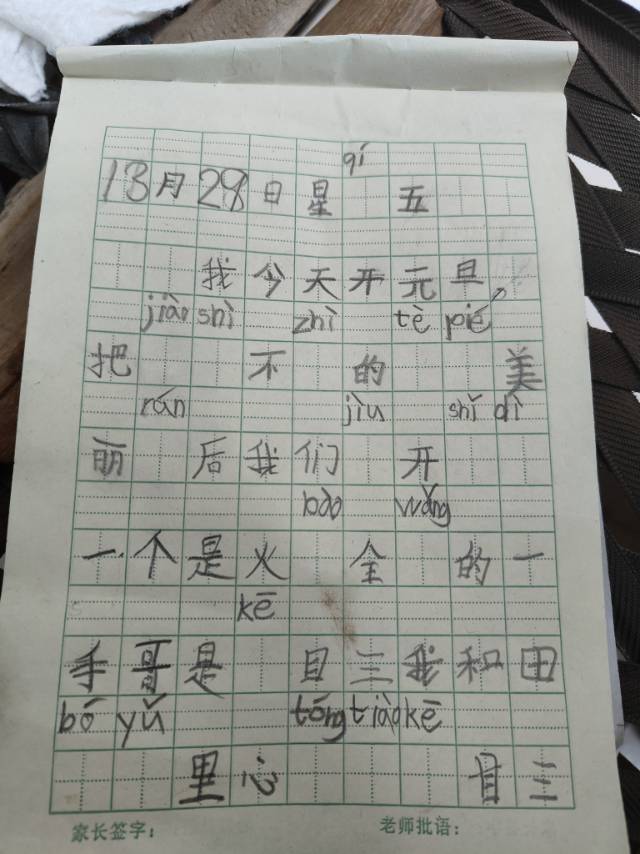 qí
13月29日星 五
我今天开元早
jiào shì zhì tè pié
把 不 的 美
rán jìu shǐ dì
丽 后我们 开
bǎo wǎng
一个是火 全 的一
kē
手哥是 目三我和田
bó yǔ tóng tiào kē
里心 目三
家长签字： 老师批语：